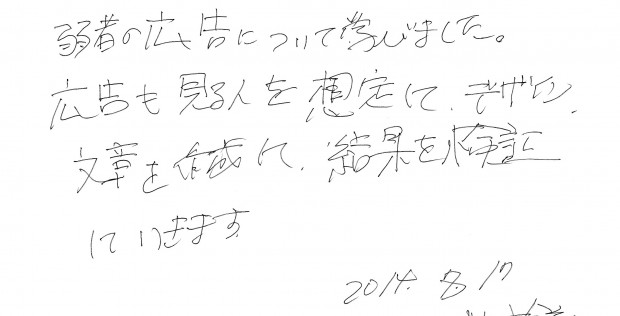 弱者の広告について学びました。
広告も見る人を想定して、デザイン、
文章を作成して、結果を検証
していきます
2014. 8. 17